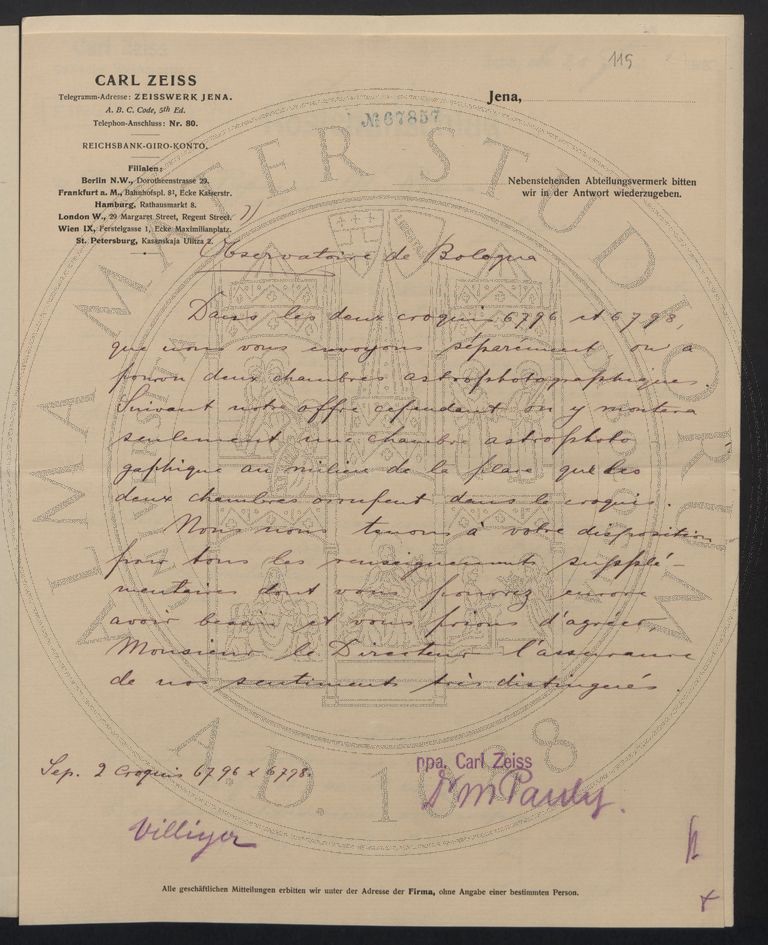 115
CARL ZEISS
Telegramm-Adresse: ZEISSWERK JENA.
A. B. C. Code, 5th Ed.
Telephon-Anschluss: Nr. 80.
REICHSBANK-GIRO-KONTO.
Filialen:
Berlin N.W., Dorotheenstrasse 29.
Frankfurt a. M., Bahnhofspl. 8¹, Ecke Kaiserstr.
Hamburg, Rathausmarkt 8.
London W., 29 Margaret Street, Regent Street.
Wien IX, Ferstelgasse 1, Ecke Maximilianplatz.
St. Petersburg, Kasanskaja Ulitza 2.
Jena,
№ 67857
Nebenstehenden Abteilungsvermerk bitten
wir in der Antwort wiederzugeben.
Observatoire de Bologna
Dans les deux croquis 6796 et 6798,
que nous vous envoyons séparément, on a
pourvu deux chambres astrophotographiques.
Suivant notre offre cependant on y montera
seulement une chambre astrophoto
gaphique au milieu de la place que les
deux chambres occupent dans le croquis.
Nous nous tenons à votre disposition
pour tous les renseignements supplé-
mentaires dont vous pourrez encore
avoir besoin et vous prions d'agréer,
Monsieur le Directeur l'assurance
de nos sentiments très distingués.
Sep. 2 Croquis 6796 & 6798.
ppa. Carl Zeiss
Dr M Pauly.
Villiger
Alle geschäftlichen Mitteilungen erbitten wir unter der Adresse der Firma, ohne Angabe einer bestimmten Person.
ALMA MATER STUDIORUM
A.D. 1088